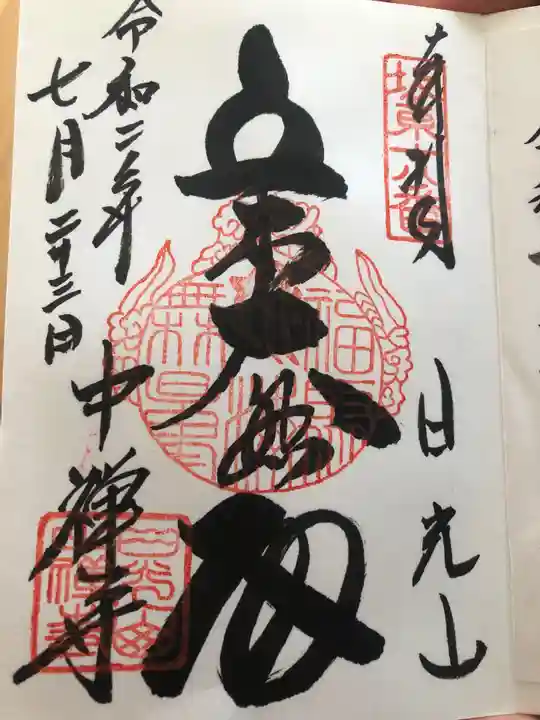 奉拝
坂東十八番
日光山
立木大悲殿
令和二年
七月二十三日
中禅寺